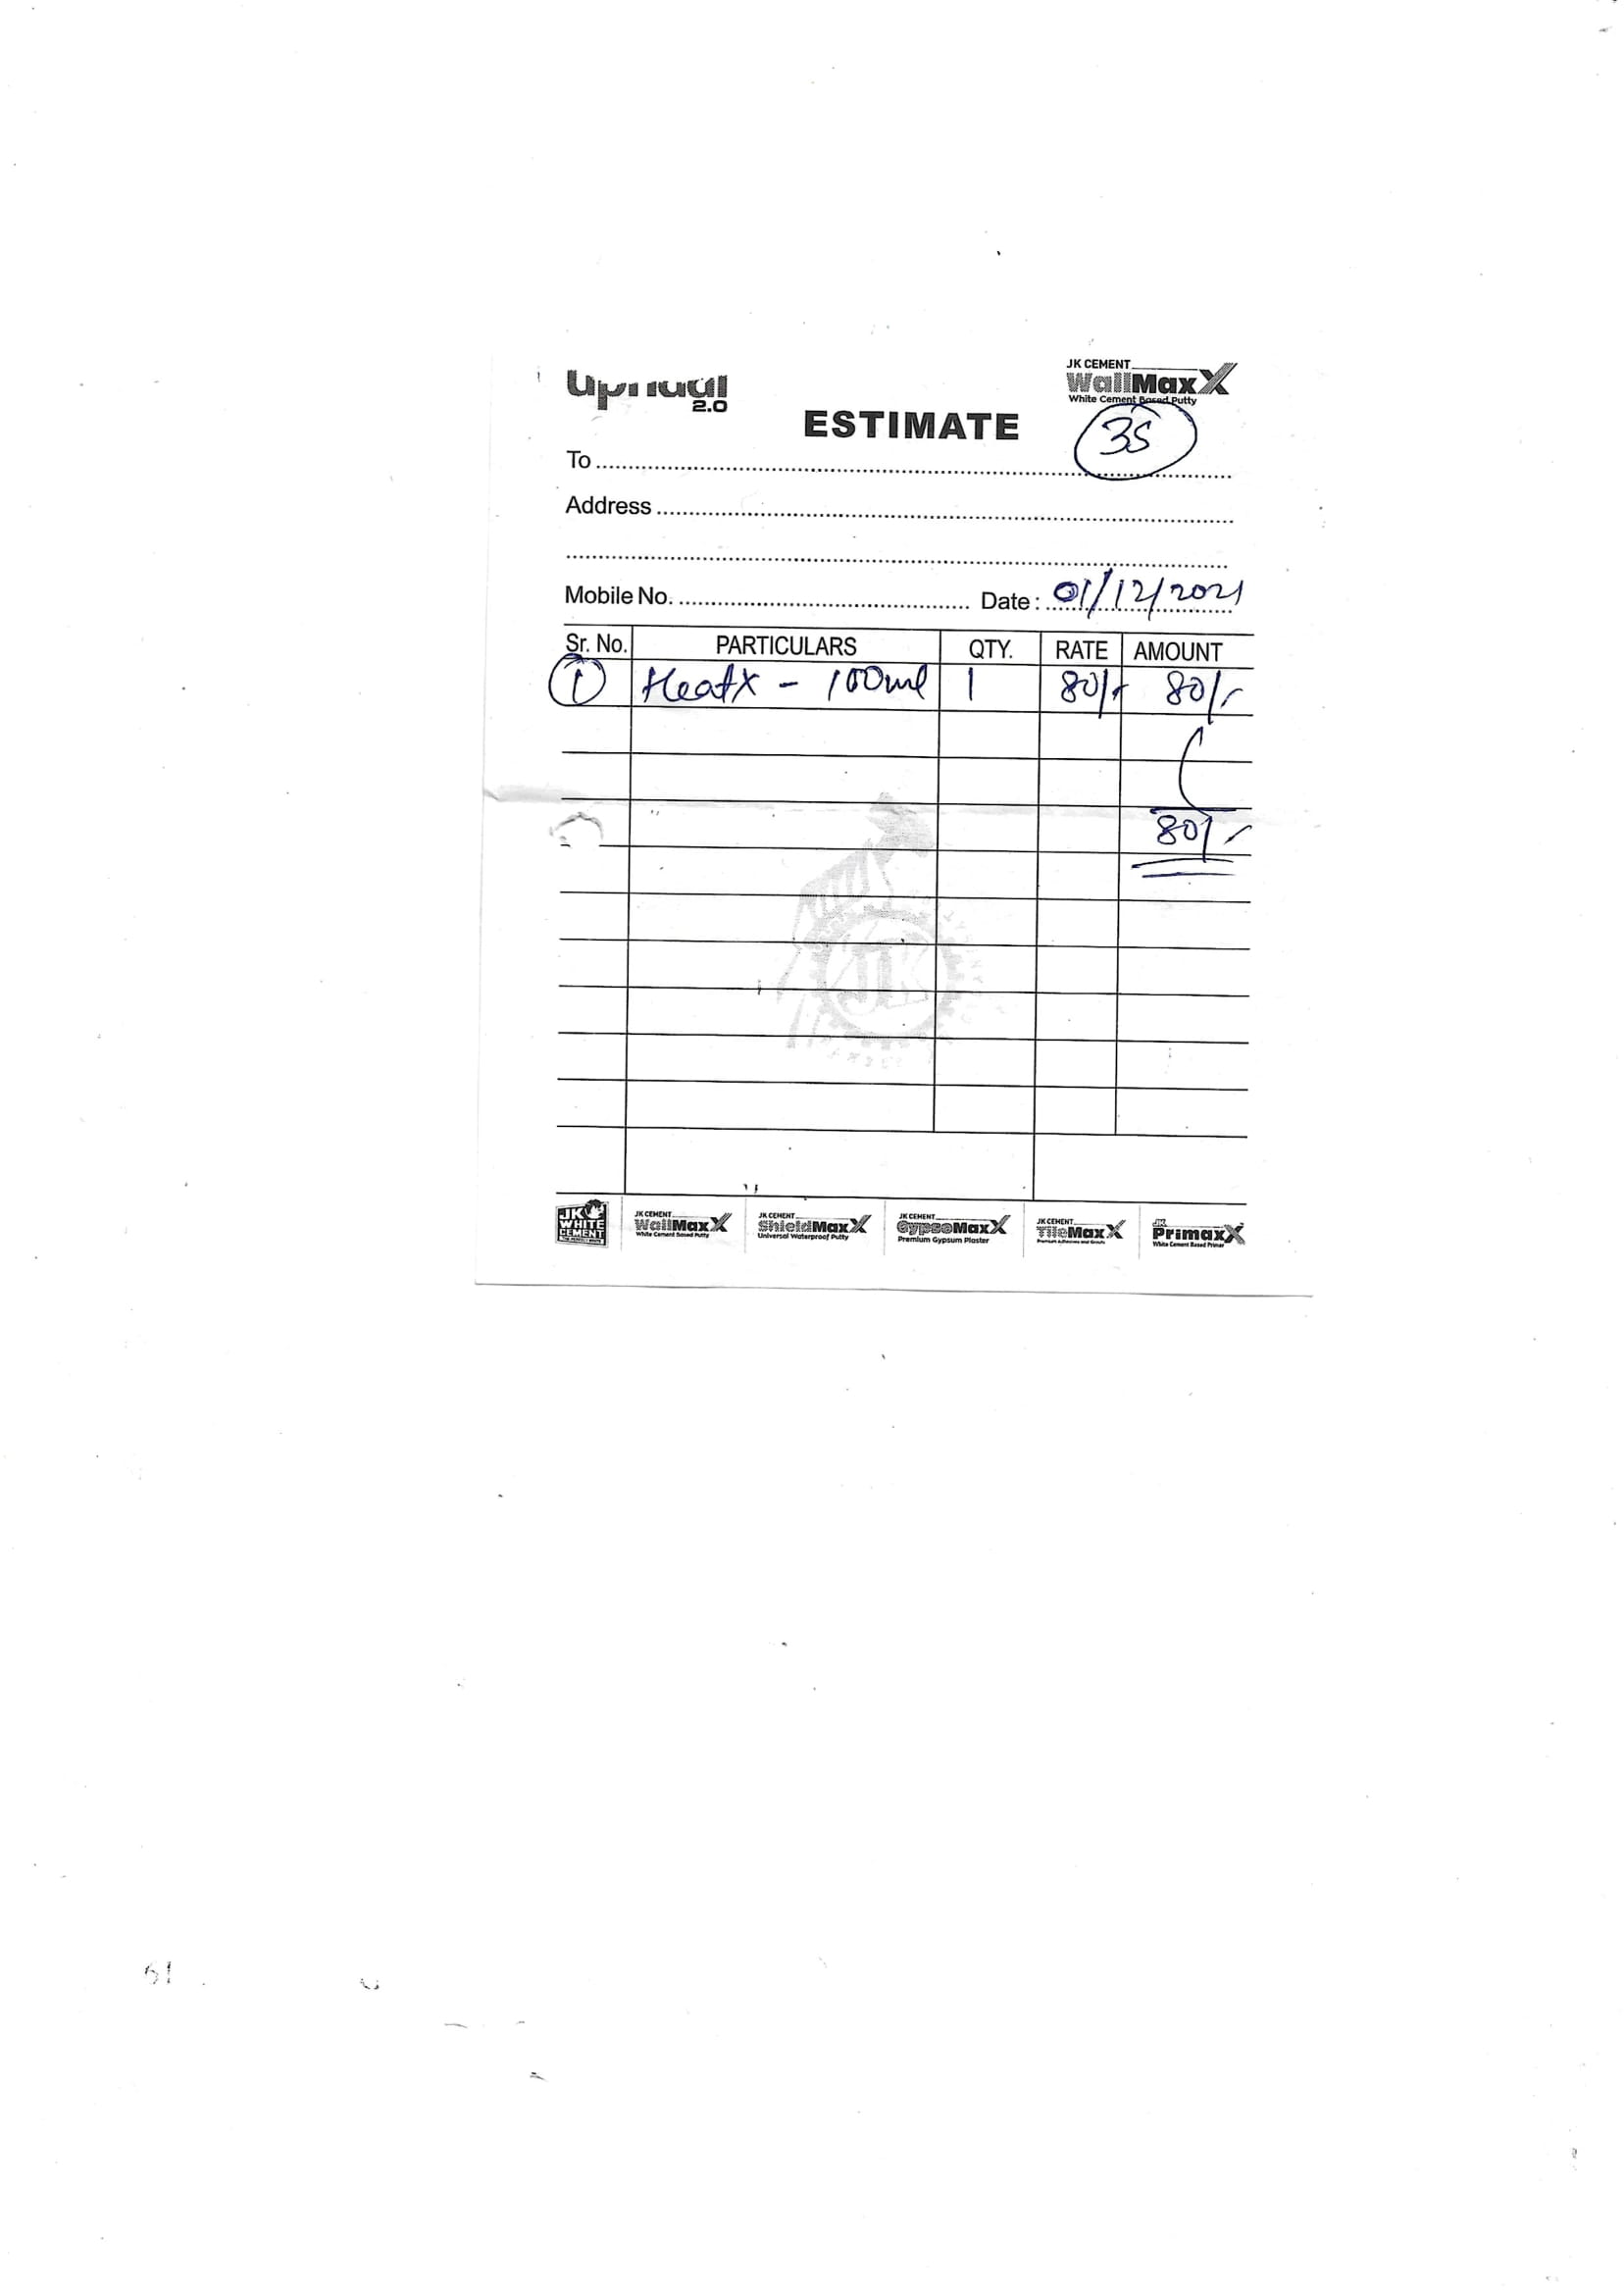 2.0
JK CEMENT
WallMaxX
White Cement Based Putty
ESTIMATE
35
To
Address
Mobile No. Date: 01/12/2021
Sr. No. PARTICULARS QTY. RATE AMOUNT
1 HeatX - 100ml 1 80/- 80/-
80/-
JK
JK WHITE CEMENT
JK CEMENT WallMaxX White Cement Based Putty
JK CEMENT ShieldMaxX Universal Waterproof Putty
JK CEMENT GypsoMaxX Premium Gypsum Plaster
JK CEMENT TileMaxX
JK PrimaxX White Cement Based Primer